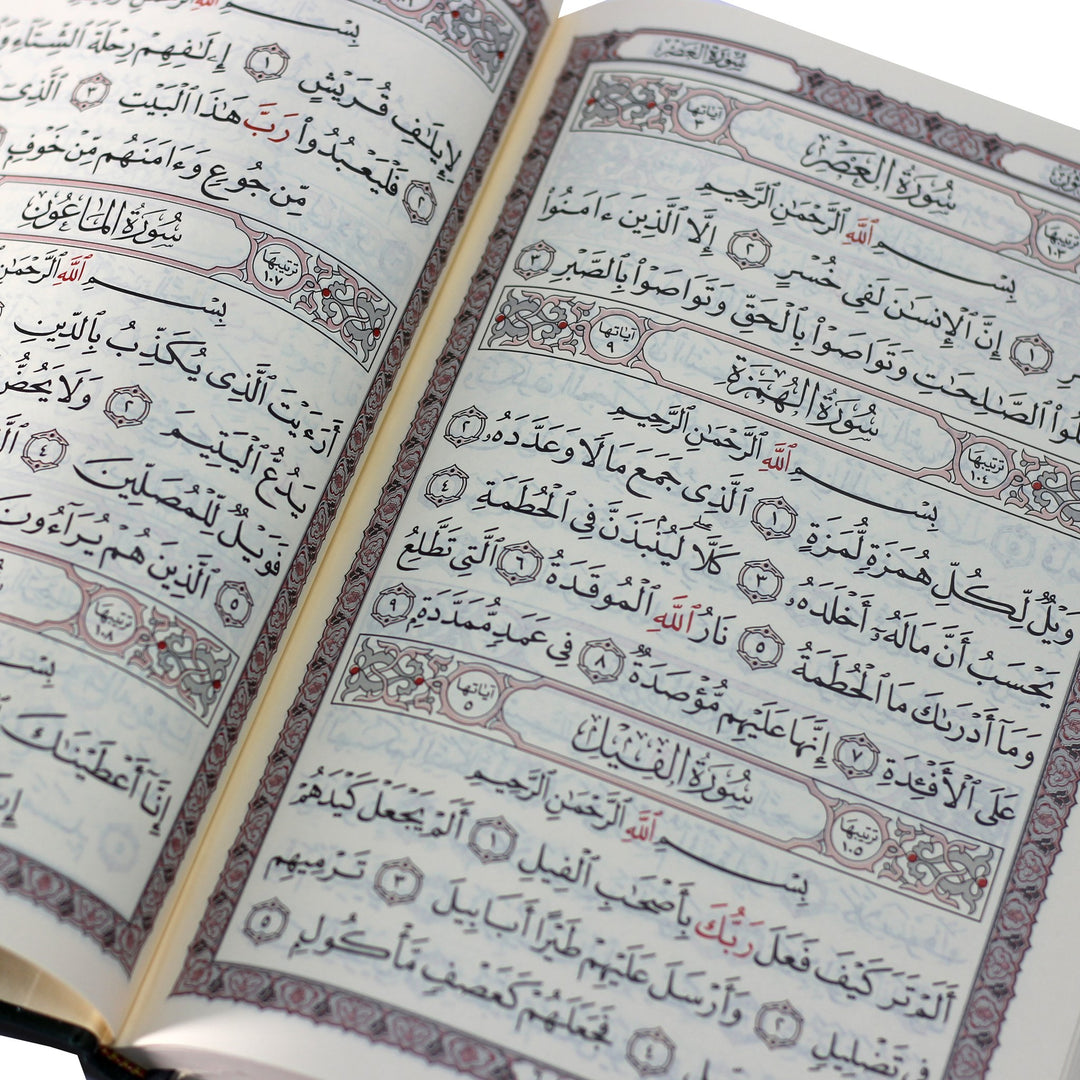 سُورَةُ العَصْرِ
سُورَةُ العَصْرِ ترتيبها ١٠٣ آياتها ٣
بِسْمِ ٱللَّهِ ٱلرَّحْمَٰنِ ٱلرَّحِيمِ
١ إِنَّ ٱلْإِنسَٰنَ لَفِى خُسْرٍ ٢ إِلَّا ٱلَّذِينَ ءَامَنُوا۟
ٱلصَّٰلِحَٰتِ وَتَوَاصَوْا۟ بِٱلْحَقِّ وَتَوَاصَوْا۟ بِٱلصَّبْرِ ٣
ترتيبها ١٠٤ سُورَةُ الهُمَزَةِ آياتها ٩
بِسْمِ ٱللَّهِ ٱلرَّحْمَٰنِ ٱلرَّحِيمِ
وَيْلٌ لِّكُلِّ هُمَزَةٍ لُّمَزَةٍ ١ ٱلَّذِى جَمَعَ مَالًا وَعَدَّدَهُۥ ٢
يَحْسَبُ أَنَّ مَالَهُۥٓ أَخْلَدَهُۥ ٣ كَلَّا ۖ لَيُنۢبَذَنَّ فِى ٱلْحُطَمَةِ ٤
وَمَآ أَدْرَىٰكَ مَا ٱلْحُطَمَةُ ٥ نَارُ ٱللَّهِ ٱلْمُوقَدَةُ ٦ ٱلَّتِى تَطَّلِعُ
عَلَى ٱلْأَفْـِٔدَةِ ٧ إِنَّهَا عَلَيْهِم مُّؤْصَدَةٌ ٨ فِى عَمَدٍ مُّمَدَّدَةٍۭ ٩
ترتيبها ١٠٥ سُورَةُ الفِيلِ آياتها ٥
بِسْمِ ٱللَّهِ ٱلرَّحْمَٰنِ ٱلرَّحِيمِ
أَلَمْ تَرَ كَيْفَ فَعَلَ رَبُّكَ بِأَصْحَٰبِ ٱلْفِيلِ ١ أَلَمْ يَجْعَلْ كَيْدَهُمْ
فِى تَضْلِيلٍ ٢ وَأَرْسَلَ عَلَيْهِمْ طَيْرًا أَبَابِيلَ ٣ تَرْمِيهِم
٤ فَجَعَلَهُمْ كَعَصْفٍ مَّأْكُولٍۭ ٥
بِسْمِ ٱللَّهِ
لِإِيلَٰفِ قُرَيْشٍ ١ إِۦلَٰفِهِمْ رِحْلَةَ ٱلشِّتَآءِ
٢ فَلْيَعْبُدُوا۟ رَبَّ هَٰذَا ٱلْبَيْتِ ٣ ٱلَّذِىٓ
مِّن جُوعٍ وَءَامَنَهُم مِّنْ خَوْفٍۭ
ترتيبها ١٠٧ سُورَةُ المَاعُونِ
بِسْمِ ٱللَّهِ ٱلرَّحْمَٰنِ
أَرَءَيْتَ ٱلَّذِى يُكَذِّبُ بِٱلدِّينِ
يَدُعُّ ٱلْيَتِيمَ ٢ وَلَا يَحُضُّ
فَوَيْلٌ لِّلْمُصَلِّينَ ٤
٥ ٱلَّذِينَ هُمْ يُرَآءُونَ
ترتيبها ١٠٨
بِسْمِ
إِنَّآ أَعْطَيْنَٰكَ